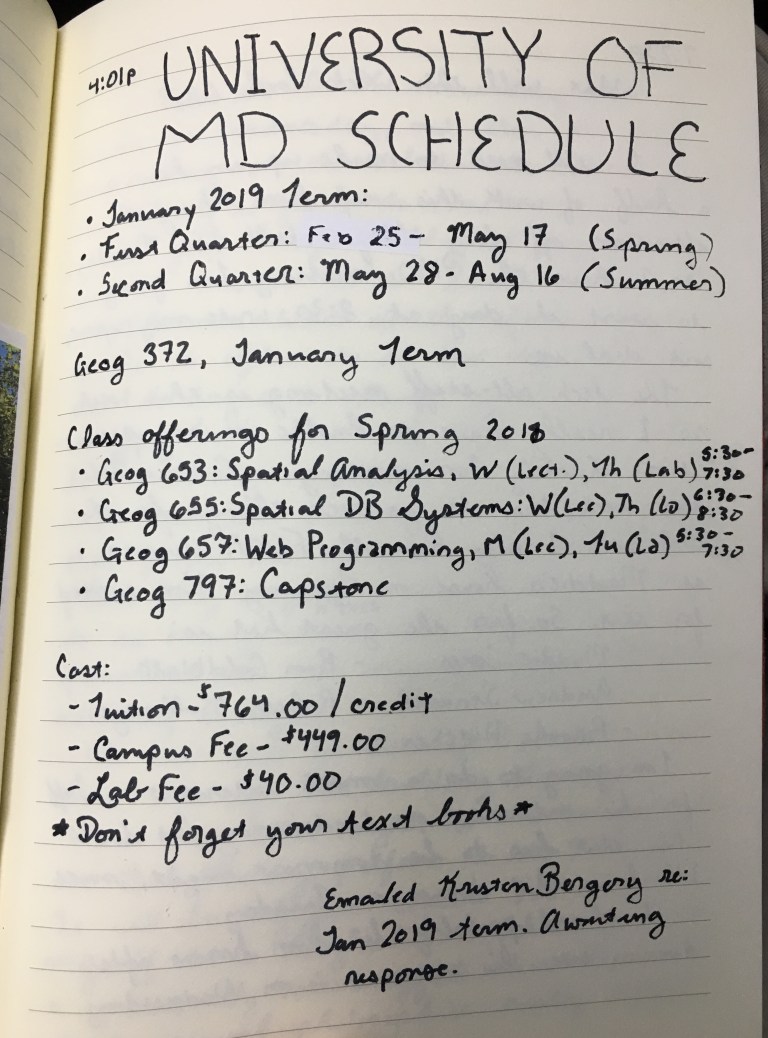 4:01p UNIVERSITY OF
MD SCHEDULE
• January 2019 Term:
• First Quarter: Feb 25 - May 17 (Spring)
• Second Quarter: May 28 - Aug 16 (Summer)
Geog 372, January Term
Class offerings for Spring 2018
• Geog 653: Spatial Analysis, W (Lect.), Th (Lab) 5:30-7:30
• Geog 655: Spatial DB Systems: W (Lec), Th (La) 6:30-8:30
• Geog 657: Web Programming, M (Lec), Tu (La) 5:30-7:30
• Geog 797: Capstone
Cost:
- Tuition - $764.00 / credit
- Campus Fee - $449.00
- Lab Fee - $40.00
* Don't forget your text books *
Emailed Kristen Bergery re:
Jan 2019 term. Awaiting
response.